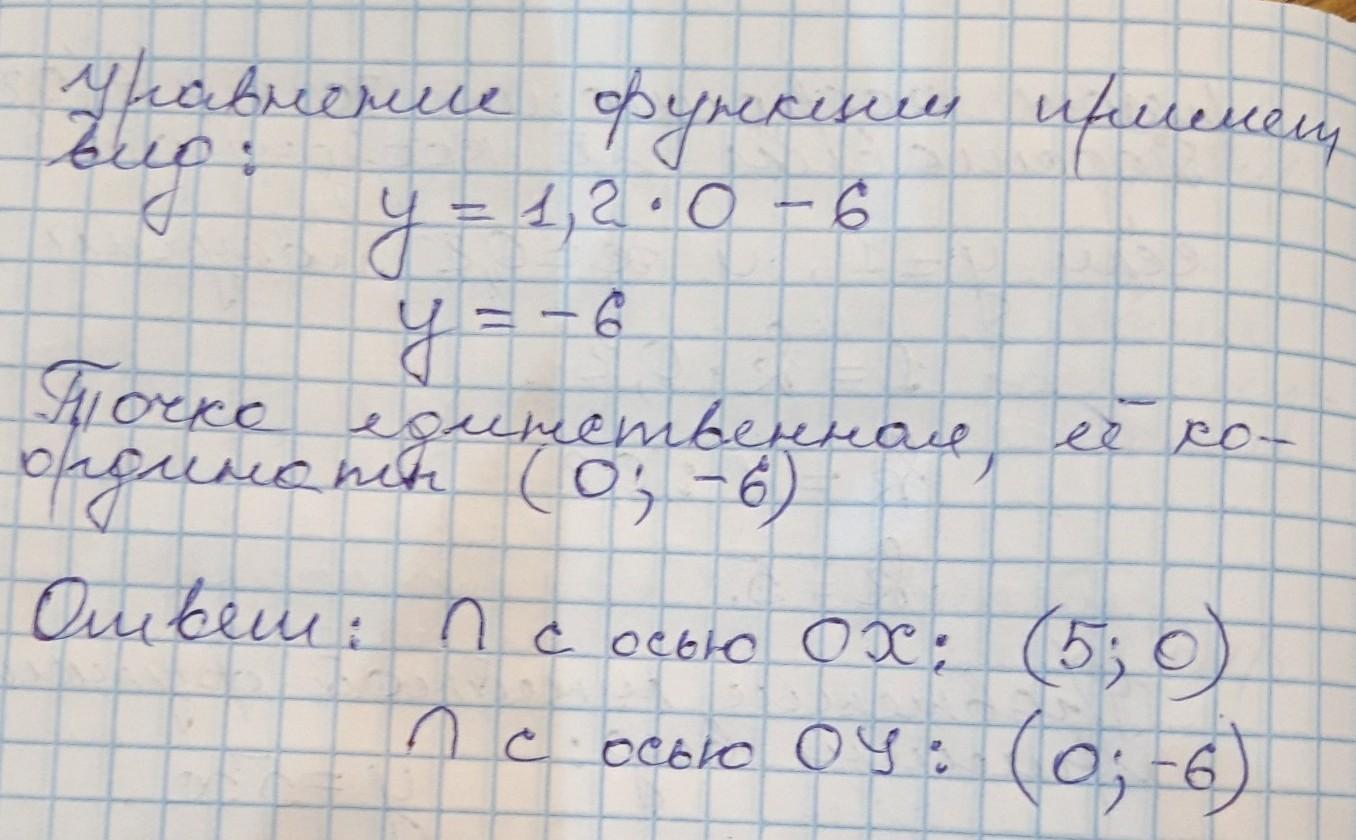 Уравнение функции примет
вид:
y = 1,2 · 0 - 6
y = -6
Точка единственная, её ко-
ординаты (0; -6)
Ответ: ∩ с осью OX: (5; 0)
∩ с осью OY: (0; -6)